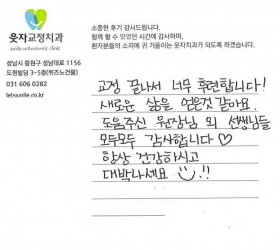 웃자교정치과
smile orthodontic clinic
성남시 중원구 성남대로 1156
도원빌딩 3~5층(위즈노건물)
031 606 0282
letsmile.co.kr
소중한 후기 감사드립니다.
함께 할 수 있었던 시간에 감사하며,
환자분들의 소리에 귀 기울이는 웃자치과가 되도록 하겠습니다.
교정 끝나서 너무 후련합니다!
새로운 삶을 얻은것 같아요.
도움주신 원장님 외 선생님들
모두모두 감사합니다 ♡
항상 건강하시고
대박나세요 !!